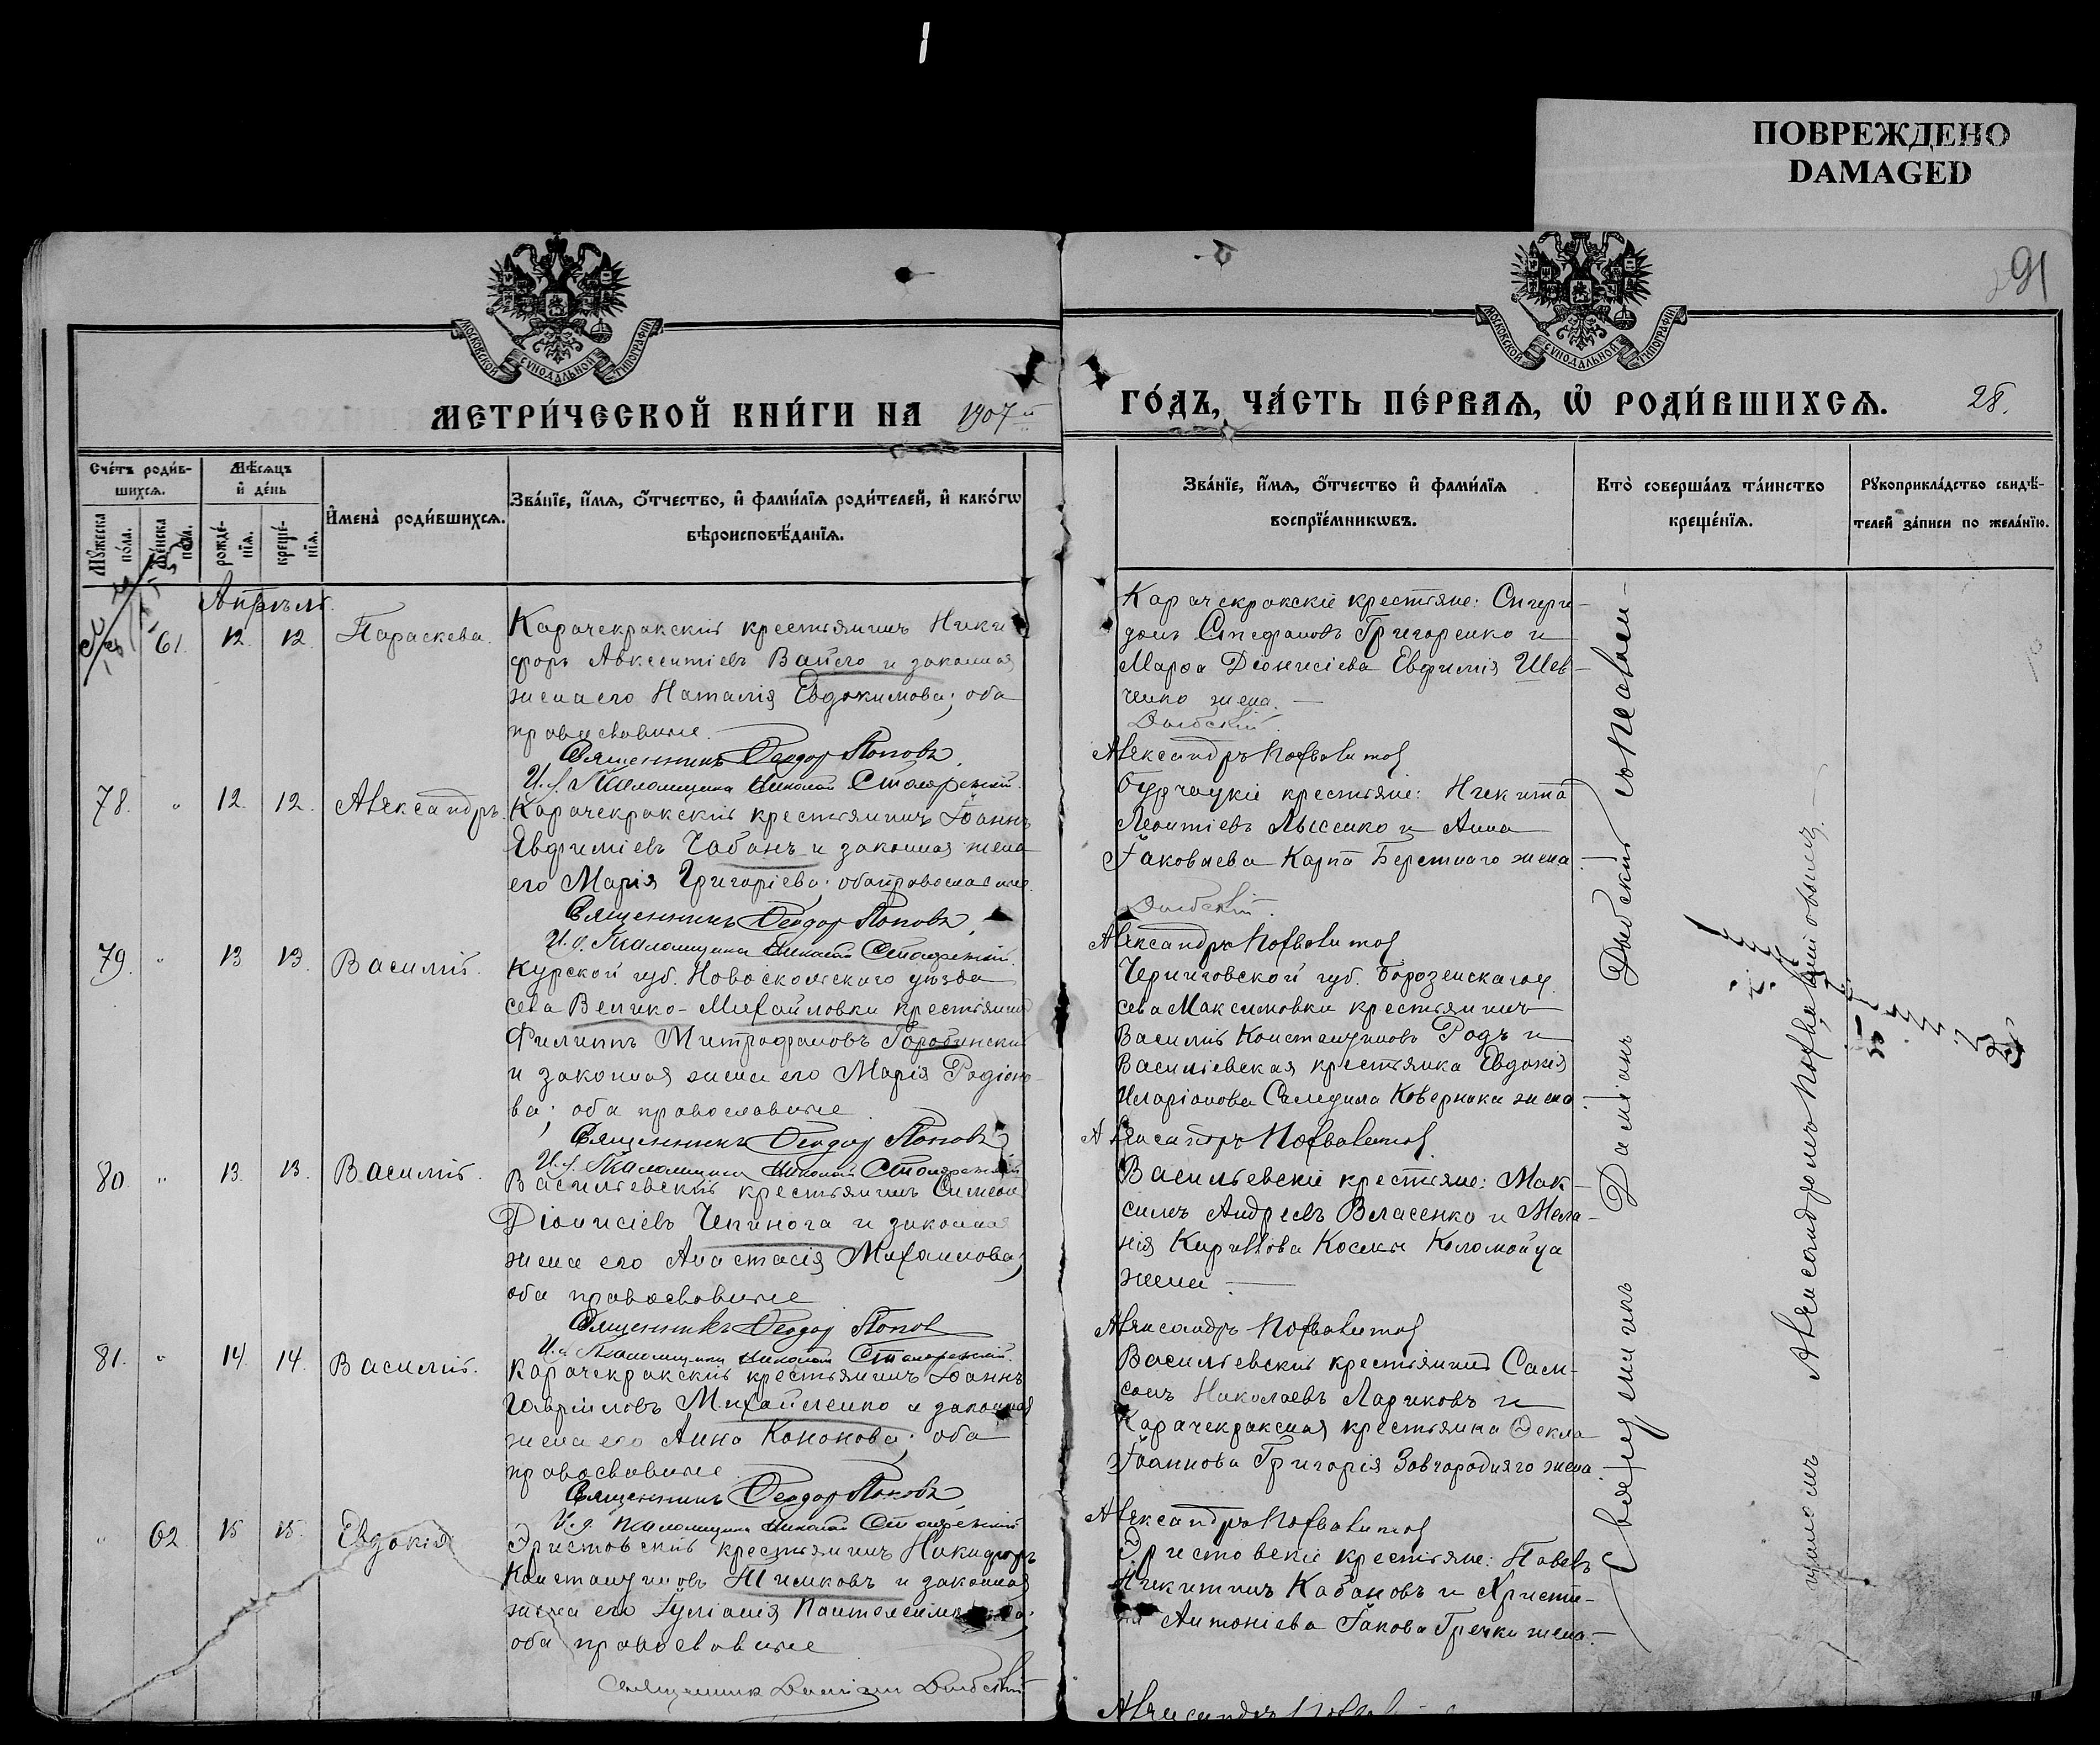 ПОВРЕЖДЕНО
DAMAGED
91
МОСКОВСКОЙ СѴНОДАЛЬНОЙ ТИПОГРАФІИ
МОСКОВСКОЙ СѴНОДАЛЬНОЙ ТИПОГРАФІИ
МЕТРИ́ЧЕСКОЙ КНИ́ГИ НА 1907й
ГО́ДЪ, ЧА́СТЬ ПЕ́РВАѦ, Ѡ҆ РОДИ́ВШИХСѦ. 28.
Сче́тъ роди́в-
шихсѧ.
Мѣ́сѧцъ
и҆ де́нь
Мꙋ́жеска по́ла.
Же́нска по́ла.
рожде́-
нїѧ.
креще́-
нїѧ.
И҆мена̀ роди́вшихсѧ.
Зва́нїе, и҆́мѧ, ѻ҆́тчество, и҆ фами́лїѧ роди́телей, и҆ како́гѡ
вѣроисповѣ́данїѧ.
Зва́нїе, и҆́мѧ, ѻ҆́тчество и҆ фами́лїѧ
воспрїе́мникѡвъ.
Кто̀ соверша́лъ та́инство
креще́нїѧ.
Рꙋкоприкла́дство свидѣ́-
телей за́писи по жела́нїю.
Апрѣль
61. 12. 12. Параскева.
Карачекракскій крестьянинъ Ники
форъ Авксентіевъ Вайло и законная
жена его Наталія Евдокимова; оба
православные.
Священникъ Ѳеодоръ Поповъ
И. д. Псаломщика Николай
Карачекракскіе крестьяне: Спири-
донъ Стефановъ Григоренко и
Марѳа Діонисіева Евфимія Шев-
ченко жена.
Дыбскій
Александръ
78. " 12. 12. Александръ.
Карачекракскій крестьянинъ Іоаннъ
Евфиміевъ Чабанъ и законная жена
его Марія Григоріева; оба православные.
Священникъ Ѳеодоръ Поповъ
И. д. Псаломщика Николай
крестьяне: Никита
Леонтіевъ Лысенко и Анна
Іаковлева Карпа Берешнаго жена.
Дыбскій.
Александръ
79. " 13 13. Василій.
Курской губ. Новооскольскаго уѣзда
села Велико-Михайловки крестьянинъ
Филиппъ Митрофановъ
и законная жена его Марія Родіоно-
ва; оба православные.
Священникъ Ѳеодоръ Поповъ
И. д. Псаломщика Николай
Черниговской губ.
села Максимовки крестьянинъ
Василій Константиновъ Родъ и
Васильевская крестьянка Евдокія
Иларіонова Коверника жена.
Александръ
80. " 13. 13. Василій.
Васильевскій крестьянинъ Симеонъ
Діонисіевъ Чепинога и законная
жена его Анастасія Михаилова;
оба православные
Священникъ Ѳеодоръ Поповъ
И. д. Псаломщика Николай
Васильевскіе крестьяне: Мак-
симъ Андреевъ Власенко и Мела-
нія Кириллова Косьмы Коломойца
жена.
Александръ
81. " 14 14. Василій.
Карачекракскій крестьянинъ Іоаннъ
Гавріиловъ Михайленко и законная
жена его Анна Кононова; оба
православные.
Священникъ Ѳеодоръ Поповъ
И. д. Псаломщика Николай
Васильевскій крестьянинъ Сам-
сонъ Николаевъ Лариковъ и
Карачекракская крестьянка Ѳекла
Іоаннова Григорія Завгородняго жена.
Александръ
" 62. 15 15. Евдокія
Эристовскій крестьянинъ Никифоръ
Константиновъ и законная
жена его Іуліанія
оба православные
Священникъ Даміанъ Дыбскій
Эристовскіе крестьяне: Павелъ
Никитинъ Кабановъ и Христи-
на Антоніева Іакова Гречки жена.
Александръ
Священникъ Даміанъ Дыбскій съ псалом-
щикомъ Александромъ